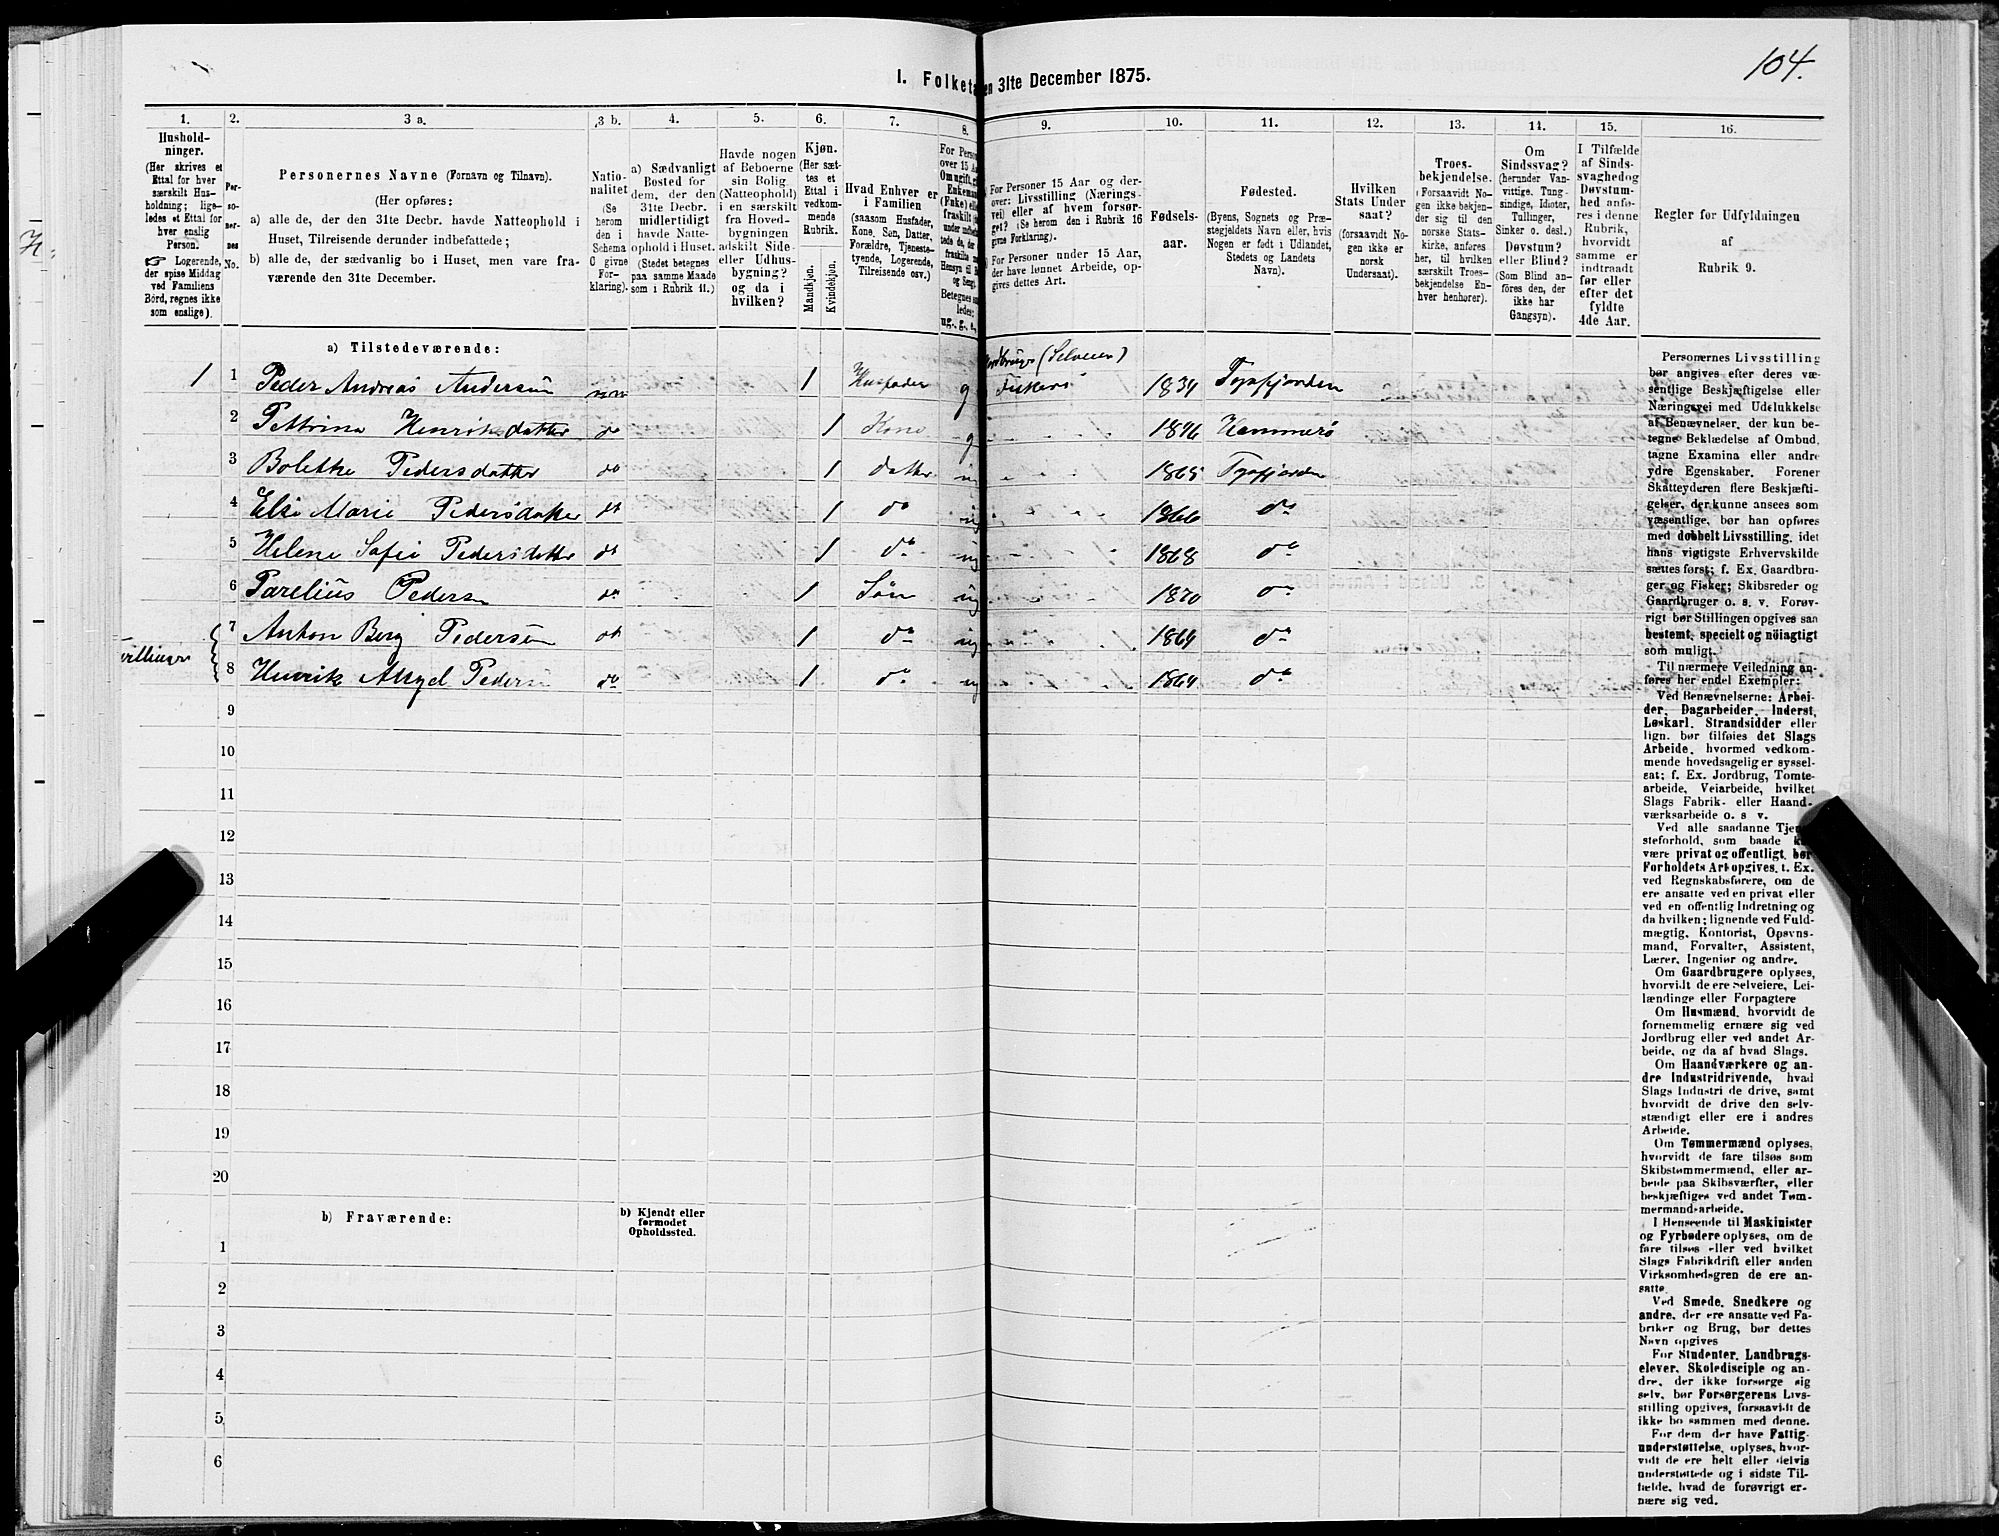 104.
I. Folketa en 31te December 1875.
1. 2. 3 a. 3 b. 4. 5. 6. 7. 8. 9. 10. 11. 12. 13. 14. 15. 16.
Hushold-
ninger.
(Her skrives et
Ettal for hver
særskilt Hus-
holdning; lige-
ledes et Ettal for
hver enslig
Person.
☞ Logerende,
der spise Middag
ved Familiens
Bord, regnes ikke
som enslige).
Per-
so-
ner-
nes
No.
Personernes Navne (Fornavn og Tilnavn).
(Her opføres:
a) alle de, der den 31te Decbr. havde Natteophold i
Huset, Tilreisende derunder indbefattede;
b) alle de, der sædvanlig bo i Huset, men vare fra-
værende den 31te December.
Natio-
nalitet
(Se
herom
den i
Schema
C givne
For-
klaring).
a) Sædvanligt
Bosted for
dem, der den
31te Decbr.
midlertidigt
havde Natte-
ophold i Huset.
(Stedet betegnes
paa samme Maade
som i Rubrik 11.)
Havde nogen
af Beboerne
sin Bolig
(Natteophold)
i en særskilt
fra Hoved-
bygningen
adskilt Side-
eller Udhus-
bygning?
og da i
hvilken?
Kjøn.
(Her sæt-
tes et
Ettal i
vedkom-
mende
Rubrik.
Mandkjøn.
Kvindekjøn.
Hvad Enhver er
i Familien
(saasom Husfader,
Kone, Søn, Datter,
Forældre, Tjeneste-
tyende, Logerende,
Tilreisende osv.)
For Perso
over 15 Aa
Omugift, gi
Enkeman
(Enke) elle
fraskilt
Betegnes
ledes:
ug., g., e.,
For Personer 15 Aar og der-
over: Livsstilling (Nærings-
vei) eller af hvem forsør-
get? (Se herom den i Rubrik 16
givne Forklaring).
For Personer under 15 Aar,
der have lønnet Arbeide, op-
gives dettes Art.
Fødsels-
aar.
Fødested.
(Byens, Sognets og Præ-
stegjeldets Navn eller, hvis
Nogen er født i Udlandet,
Stedets og Landets
Navn).
Hvilken
Stats Under
saat?
(forsaavidt No-
gen ikke er
norsk
Undersaat).
Troes-
bekjendelse.
(Forsaavidt No-
gen ikke bekjen-
der sig til den
norske Stats-
kirke, anføres
her, til hvilken
særskilt Troes-
bekjendelse En-
hver henhører).
Om
Sindssvag?
(herunder Van-
vittige, Tung-
sindige, Idioter,
Tullinger,
Sinker o. desl.)
Døvstum?
eller Blind?
(Som Blind an-
føres den, der
ikke har
Gangsyn).
I Tilfælde
af Sinds-
svaghed og
Døvstum-
hed anfø-
res i denne
Rubrik,
hvorvidt
samme er
indtraadt
før eller
efter det
fyldte
4de Aar.
Regler før Udfyldningen
af
Rubrik 9.
a) Tilstedeværende:
(Selveier)
1 1 Peder Andreas Andersen nn 1 Husfader g Fisker 1834 Tysfjorden
2 Henriksdatter do 1 Kone g Hammerø
3 Pedersdatter do 1 datter ug 1865 Tysfjorden
4 Else Marie Pedersdatter do 1 do ug 1866 do
5 Helene Sofie Pedersdatter do 1 do ug 1868 do
6 Parelius Pedersen do 1 Søn ug 1870 do
7 Anton Berg Pedersen do 1 do ug do
villinger
8 Henrik Pedersen do 1 do ug do
9
10
11
12
13
14
15
16
17
18
19
20
b) Fraværende:
b) Kjendt eller
formodet
Opholdssted.
1
2
3
4
5
6
Personernes Livsstilling
bør angives efter deres væ-
sentlige Beskjæftigelse eller
Næringsvei med Udelukkelse
af Benævnelser, der kun be-
tegne Beklædelse af Ombud,
tagne Examina eller andre
ydre Egenskaber. Forener
Skatteyderen flere Beskjæfti-
gelser, der kunne ansees som
væsentlige, bør han opføres
med dobbelt Livsstilling, idet
hans vigtigste Erhvervskilde
sættes først; f. Ex. Gaardbru-
ger og Fisker; Skibsreder og
Gaardbruger o. s. v. Forøv-
rigt bør Stillingen opgives saa
bestemt, specielt og nöiagtigt
som muligt.
Til nærmere Veiledning an-
føres her endel Exempler:
Ved Benævnelserne: Arbei-
der, Dagarbeider, Inderst,
Løskarl, Strandsidder eller
lign. bør tilføies det Slags
Arbeide, hvormed vedkom-
mende hovedsagelig er syssel-
sat; f. Ex. Jordbrug, Tomte-
arbeide, Veiarbeide, hvilket
Slags Fabrik- eller Haand-
værksarbeide o. s v.
Ved alle saadanne Tje
steforhold, som baade k
være privat og offentligt, bør
Forholdets Art opgives, t. Ex.
ved Regnskabsførere, om de
ere ansatte ved en privat eller
ved en offentlig Indretning og
da hvilken; lignende ved Fuld-
mægtig, Kontorist, Opsyns-
mand, Forvalter, Assistent,
Lærer, Ingeniør og andre.
Om Gaardbrugere oplyses,
hvorvidt de ere Selveiere, Lei-
lændinge eller Forpagtere
Om Husmænd, hvorvidt de
fornemmelig ernære sig ved
Jordbrug eller ved andet Ar-
beide, og da af hvad Slags.
Om Haandværkere og an-
dre Industridrivende, hvad
Slags Industri de drive, samt
hvorvidt de drive den selv-
stændigt eller ere i andres
Arbeide.
Om Tømmermænd oplyses,
hvorvidt de fare tilsøs som
Skibstømmermænd, eller ar-
beide paa Skibsværfter, eller
beskjæftiges ved andet Tøm-
mermandsarbeide.
I Henseende til Maskinister
og Fyrbødere oplyses, om de
fare tilsøs eller ved hvilket
Slags Fabrikdrift eller anden
Virksomhedsgren de ere an-
satte.
Ved Smede, Snedkere og
andre, der ere ansatte ved Fa-
briker og Brug, bør dettes
Navn opgives
For Studenter, Landbrugs-
elever, Skoledisciple og an-
dre, der ikke forsørge sig
selv, bør Forsørgerens Livs-
stilling opgives, forsaavidt de
ikke bo sammen med denne.
For dem, der have Fattig-
understøttelse, oplyses, hvor-
vidt de ere helt eller delvis
understøttede og i sidste Til-
fælde, hvad de forøvrigt er-
nære sig ved.